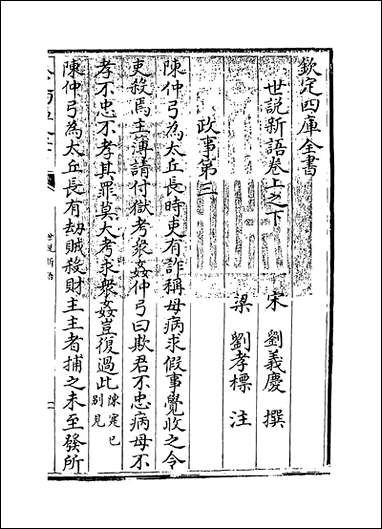 欽定四庫全書
世說新語卷上之下
宋 劉義慶 撰
梁 劉孝標 注
政事第三
陳仲弓為太丘長時吏有詐稱母病求假事覺收之令
吏殺焉主薄請付獄考衆姦仲弓曰欺君不忠病母不
孝不忠不孝其罪莫大考求衆姦豈復過此陳寔已
别見
陳仲弓為太丘長有劫賊殺財主主者捕之未至發所
世說新語